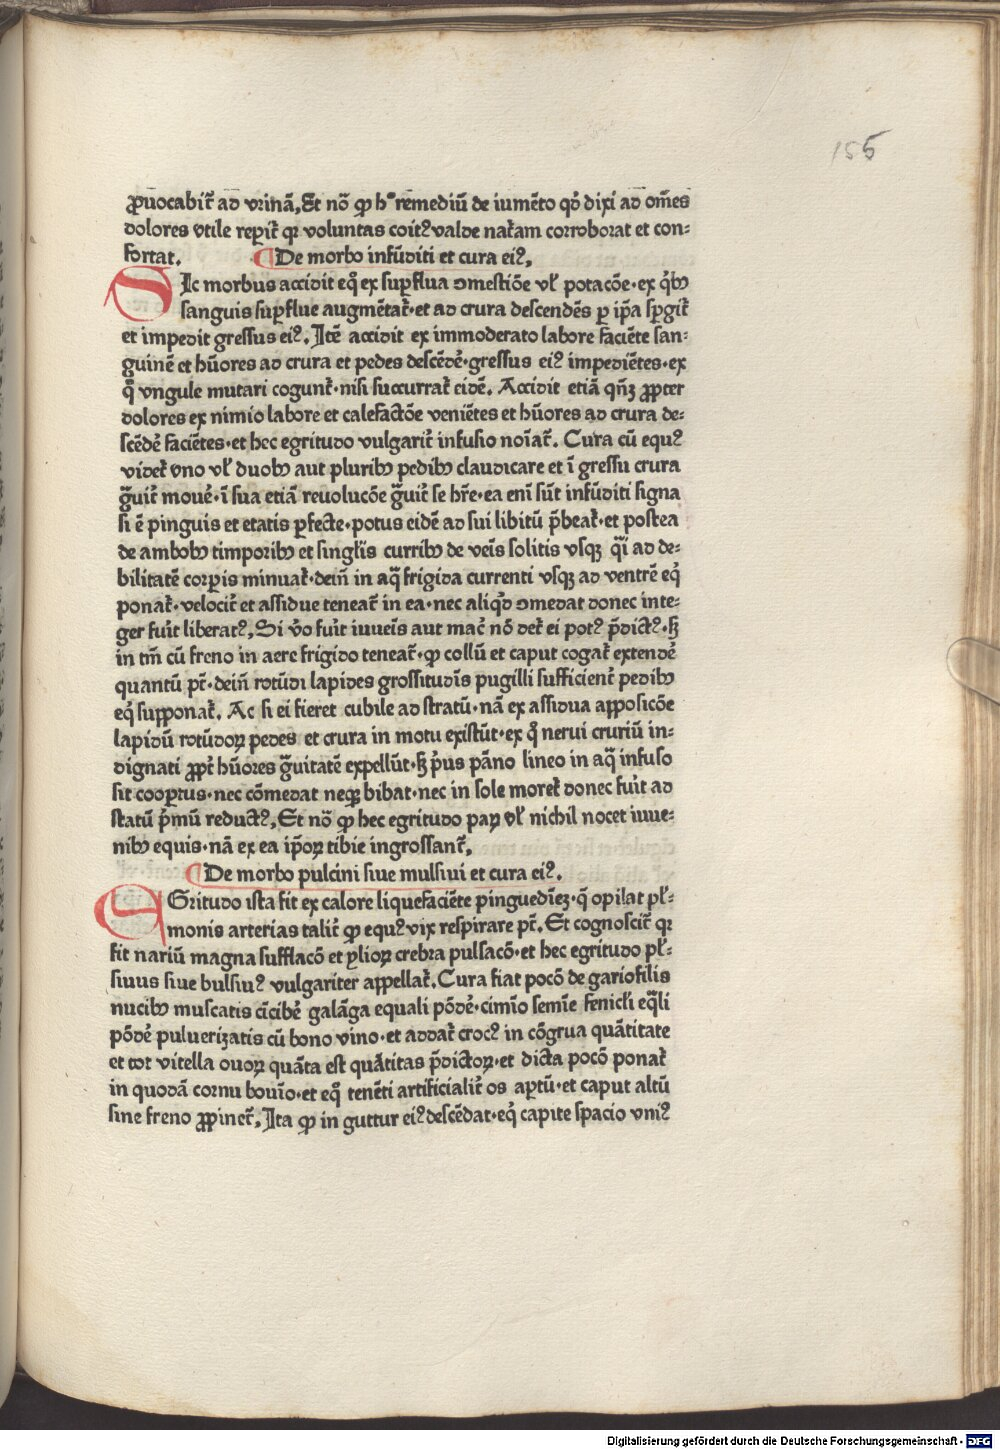 155
ꝓuocabit᷑ ad vrinā. Et nō ꝙ hº remediū de iumēto qđ dixi ad om̄es
dolores vtile repit᷑ qꝛ voluntas coitꝰ valde nat᷑am corroborat et con⸗
fortat. ¶ De morbo infūditi et cura eiꝰ.
SIc morbus accidit eq̄ ex suꝑflua ꝯmestiōe vl̓ potacōe·ex qͥbꝫ
sanguis suꝑflue augmētat᷑·et ad crura descendēs ꝑ ip̄a sꝑgit᷑
et impedit gressus eiꝰ. Itē accidit ex immoderato labore faciēte san⸗
guinē et hūores ad crura et pedes descēdē᷑·gressus eiꝰ impediētes·ex
q̄ vngule mutari cogunt᷑·nisi succurrat᷑ eidē. Accidit etiā qn̄ꝫ ꝓpter
dolores ex nimio labore et calefactōe veniētes et hūores ad crura de⸗
scēdē᷑ faciētes·et hec egritudo vulgarit᷑ infusio noīat᷑. Cura cū equꝰ
videt᷑ vno vl̓ duobꝫ aut pluribꝫ pedibꝫ claudicare et ī gressu crura
gͣuit᷑ moue᷑·ī sua etiā reuolucōe gͣuit᷑ se hr̄e·ea enī sūt infūditi signa
si ē pinguis et etatis ꝑfecte·potus eidē ad sui libitū p̄beat᷑·et postea
de ambobꝫ timporibꝫ et singl̓is curribꝫ de veīs solitis vsqꝫ qͣi ad de⸗
bilitatē corꝑis minuat᷑·dein̄ in aq̄ frigida currenti vsqꝫ ad ventrē eq᷑
ponat᷑·velocit᷑ et assidue teneat᷑ in ea·nec aliqͥd ꝯmedat donec inte⸗
ger fuit᷑ liberatꝰ. Si v̊o fuit᷑ iuueīs aut mac᷑ nō det᷑ ei potꝰ p̄dictꝰ·sꝫ
in tm̄ cū freno in aere frigido teneat᷑·ꝙ collū et caput cogat᷑ extende᷑
quantū pt̄·dein̄ rotūdi lapides grossitudīs pugilli sufficient᷑ pedibꝫ
eq᷑ supponat᷑. Ac si ei fieret cubile ad stratū·nā ex assidua apposicōe
lapidū rotūdoꝝ pedes et crura in motu existūt·ex q̄ nerui cruriū in⸗
dignati ꝓpt᷑ hūores gͣuitatē expellūt·sꝫ pͥus pāno lineo in aq̄ infuso
sit cooꝑtus·nec cōmedat neqꝫ bibat·nec in sole moret᷑ donec fuit᷑ ad
statū pͥmū reductꝰ. Et nō ꝙ hec egritudo paꝝ vl̓ nichil nocet iuue⸗
nibꝫ equis·nā ex ea ip̄oꝝ tibie ingrossant᷑.
¶ De morbo pulcini siue mulsiui et cura eiꝰ.
EGritudo ista fit ex calore liquefaciēte pinguedīeꝫ·q̄ opilat pl̓⸗
monis arterias talit᷑ ꝙ equꝰ vix respirare pt̄. Et cognoscit᷑ qꝛ
fit nariū magna sufflacō et ylioꝝ crebra pulsacō·et hec egritudo pl̓⸗
siuus siue bulsiuꝰ vulgariter appellat᷑. Cura fiat pocō de gariofilis
nucibꝫ muscatis cīcibe᷑ galāga equali pōde᷑·cimīo semīe fenicl̓i eq̄li
pōde᷑ puluerizatis cū bono vino·et addat᷑ crocꝰ in cōgrua quātitate
et tot vitella ouoꝝ quāta est quātitas p̄dictoꝝ·et dicta pocō ponat᷑
in quodā cornu bouīo·et eq̄ tenēti artificialit᷑ os aꝑtū·et caput altū
sine freno ꝓpinet᷑. Ita ꝙ in guttur eiꝰ descēdat·eq᷑ capite spacio vniꝰ
Digitalisierung gefördert durch die Deutsche Forschungsgemeinschaft - DFG